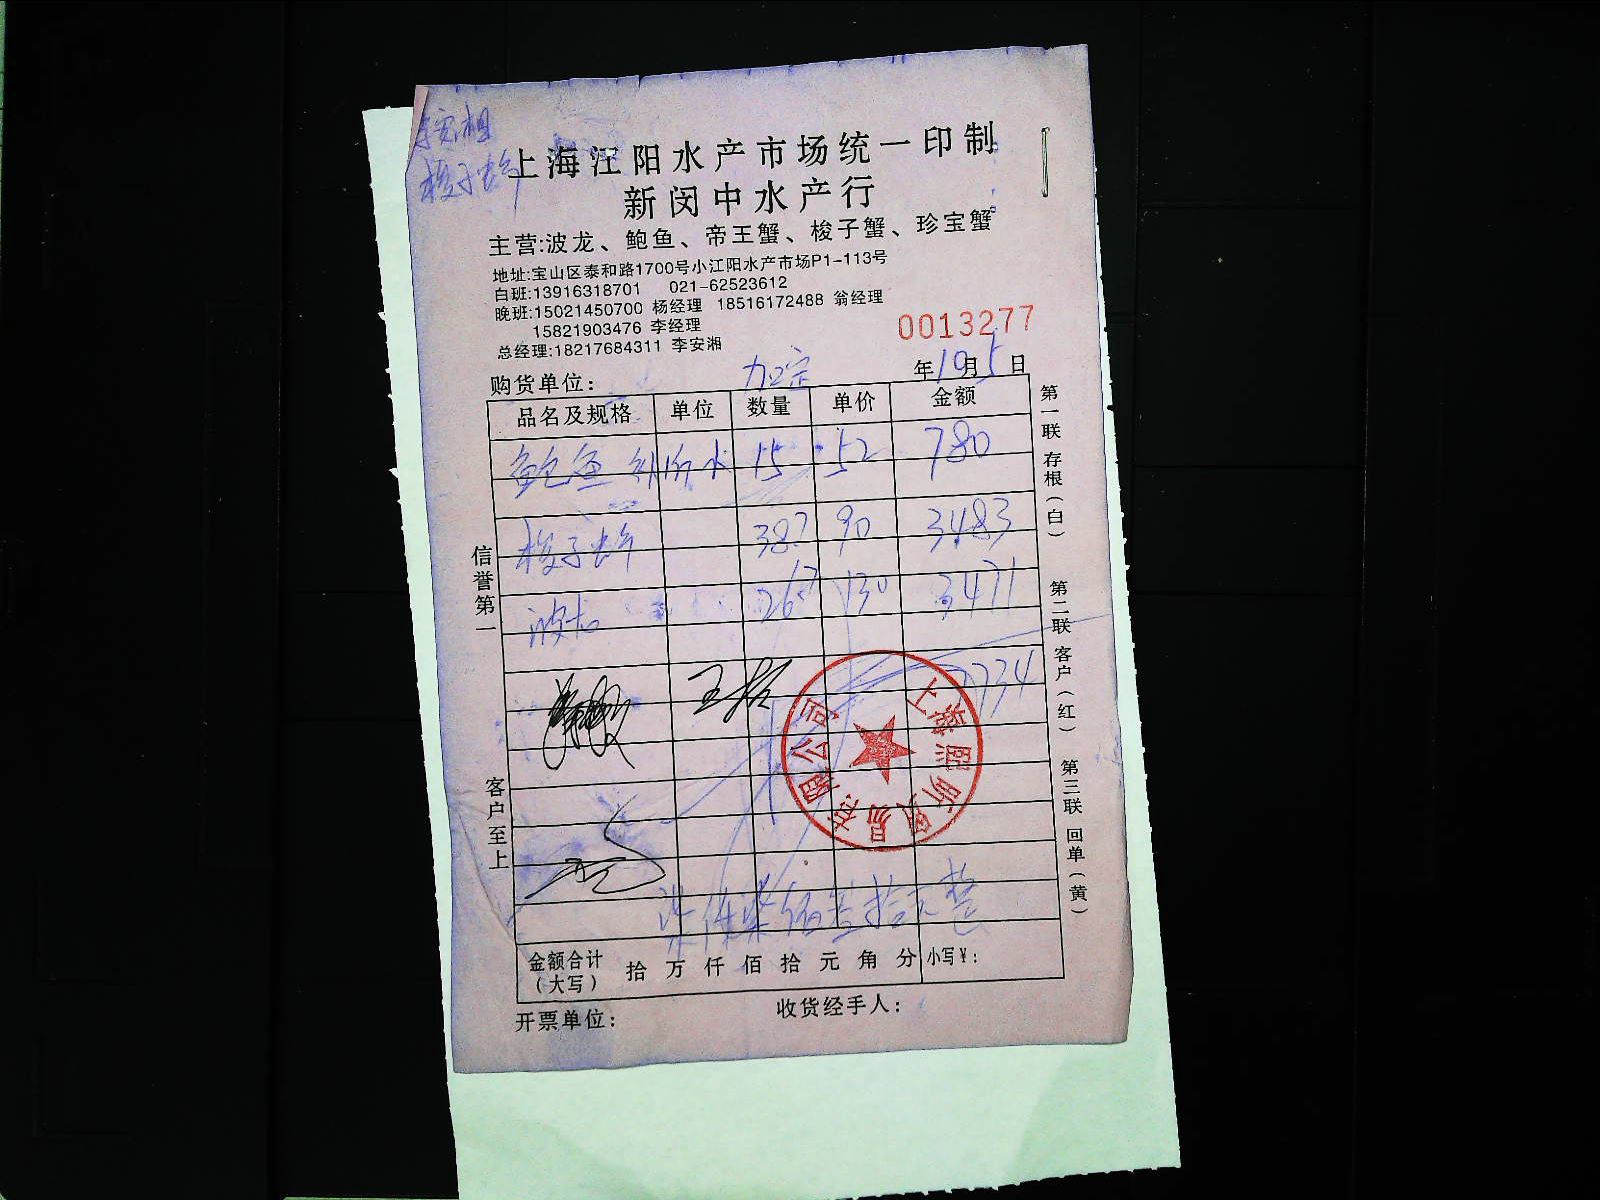 李安相
梭子蟹
上海江阳水产市场统一印制
新闵中水产行
主营:波龙、鲍鱼、帝王蟹、梭子蟹、珍宝蟹
地址:宝山区泰和路1700号小江阳水产市场P1-113号
白班:13916318701 021-62523612
晚班:15021450700 杨经理 18516172488 翁经理
15821903476 李经理
总经理:18217684311 李安湘
0013277
购货单位: 年10月5日
品名及规格 单位 数量 单价 金额
鲍鱼 15 52 780
梭子蟹 387 90 3483
波龙 267 130 3471
王 7734
上海熙昕贸易有限公司
柒仟柒佰叁拾元整
金额合计(大写) 拾 万 仟 佰 拾 元 角 分 小写¥:
开票单位: 收货经手人:
信誉第一
客户至上
第一联 存根(白)
第二联 客户(红)
第三联 回单(黄)